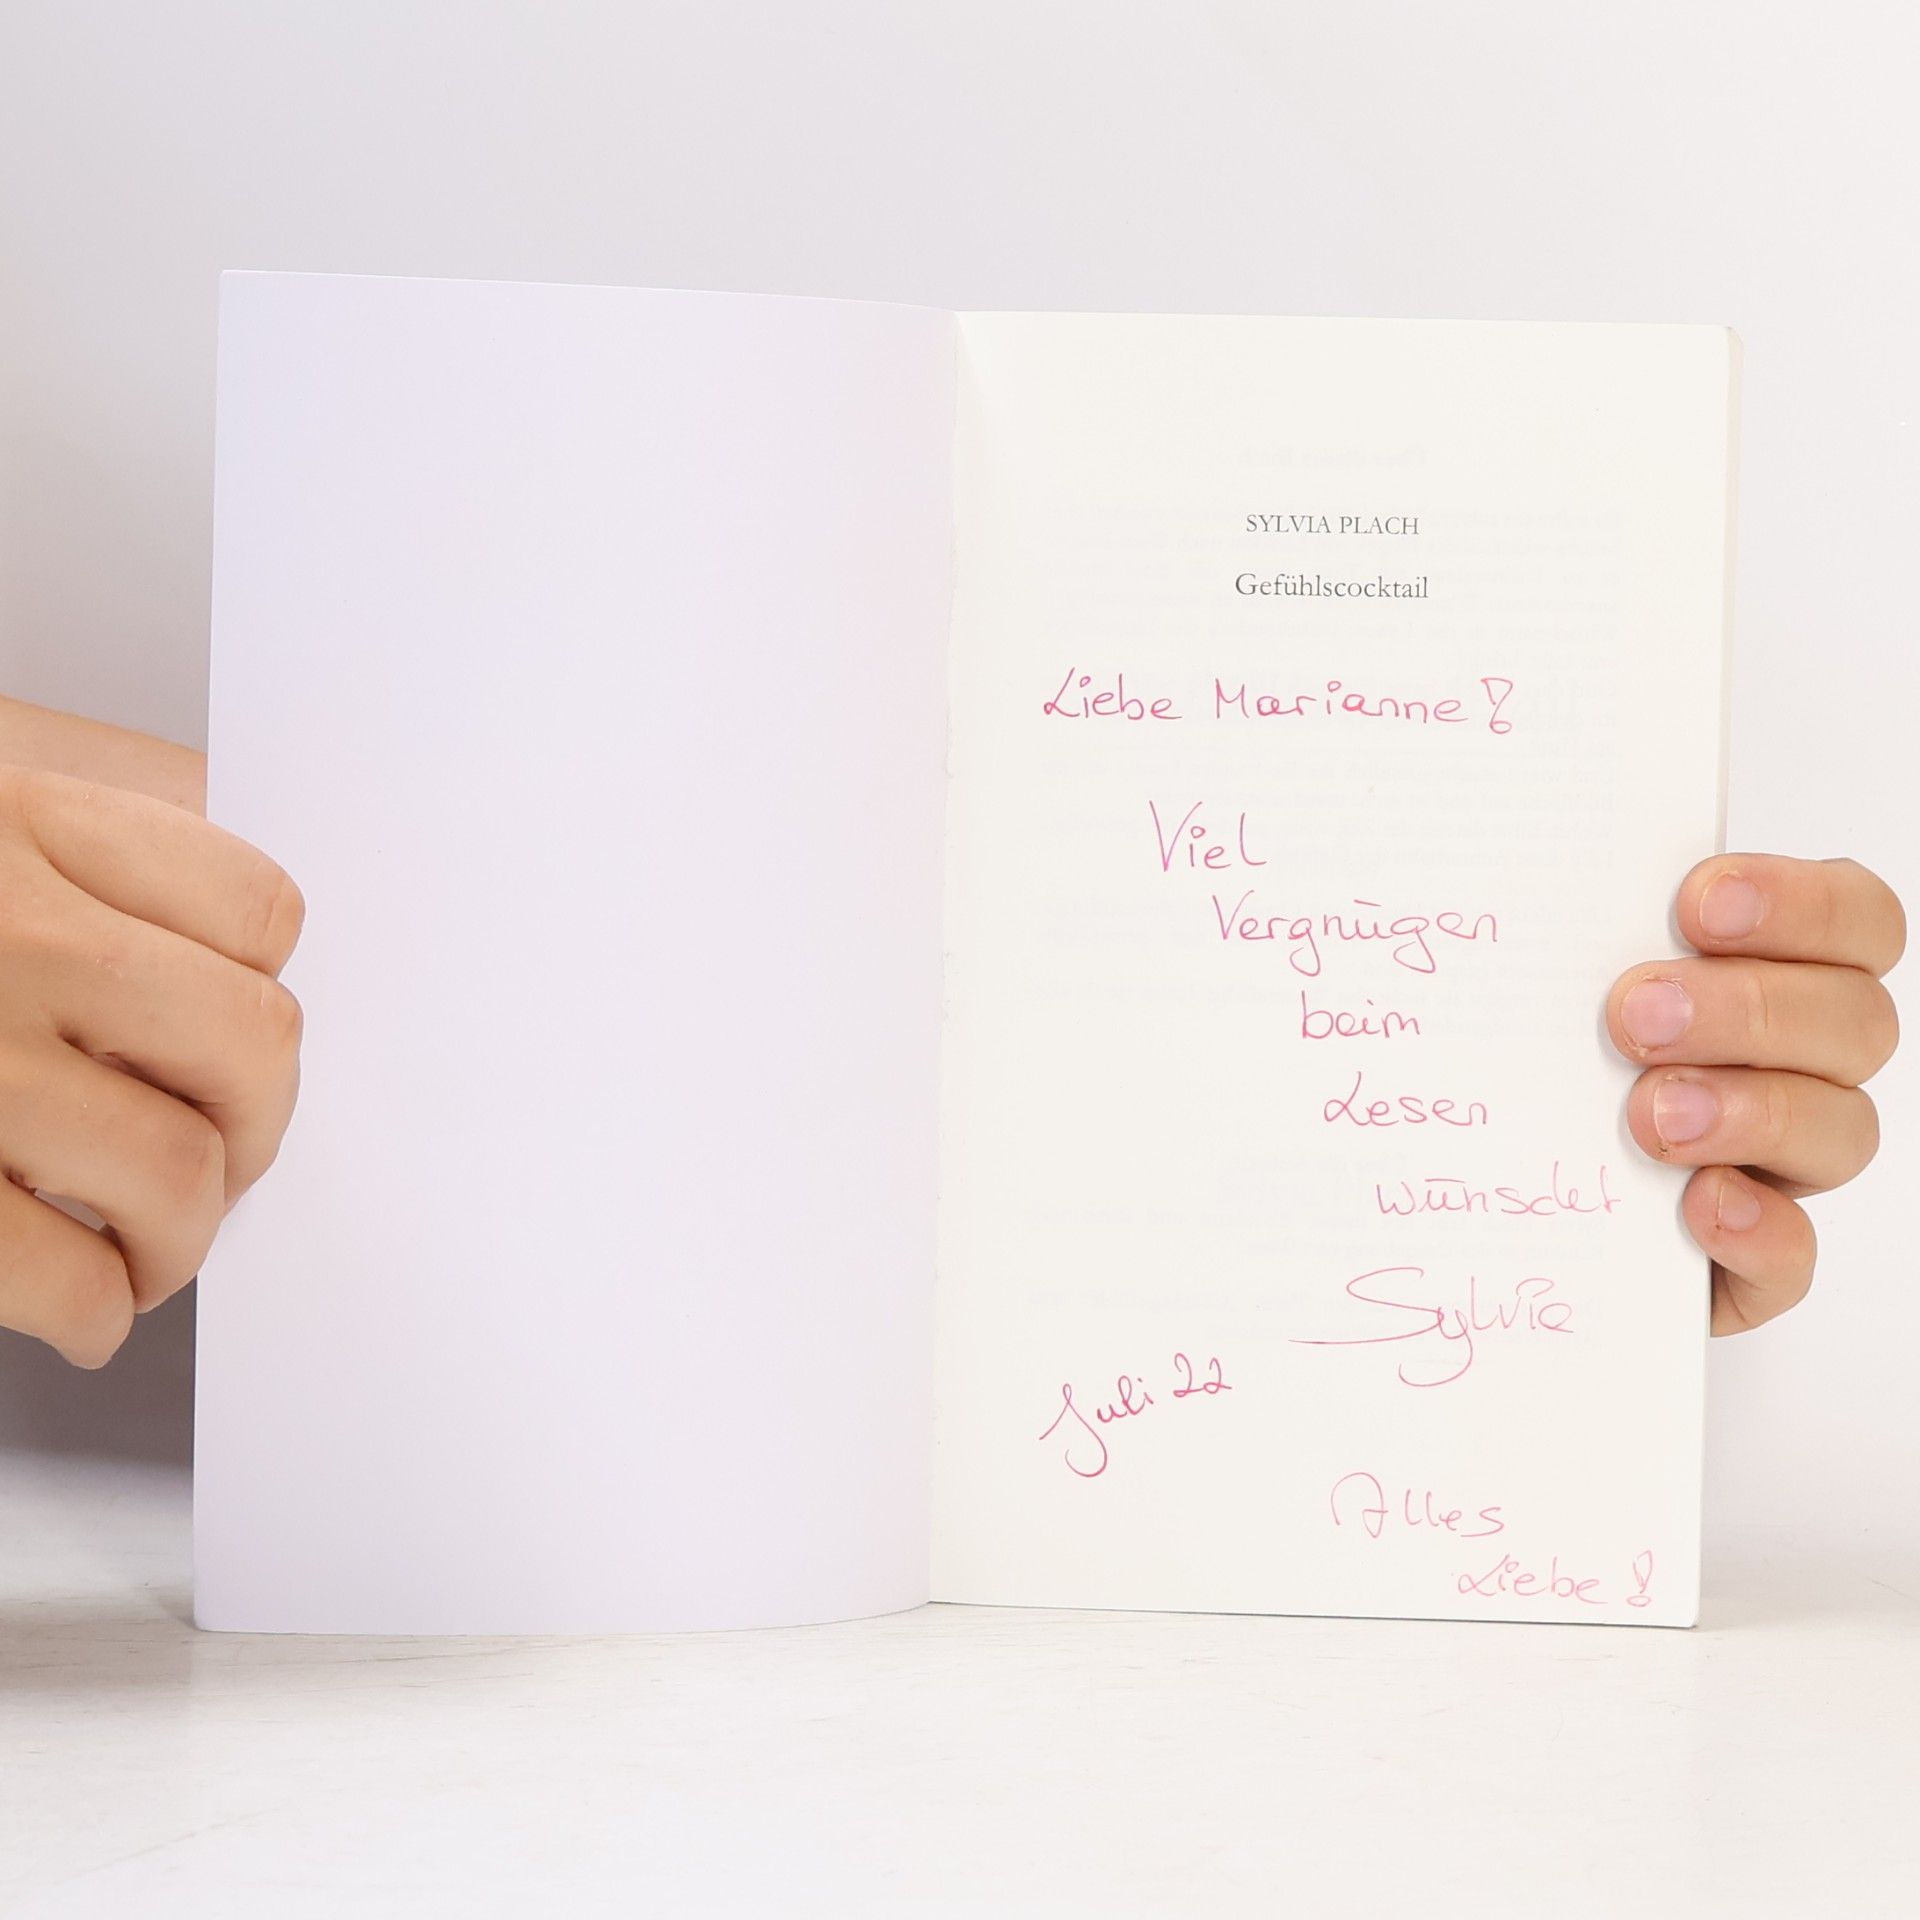 SYLVIA PLACH
Gefühlscocktail
Liebe Marianne!
Viel
Vergnügen
beim
Lesen
wünschet
Sylvia
Juli 22
Alles
Liebe!